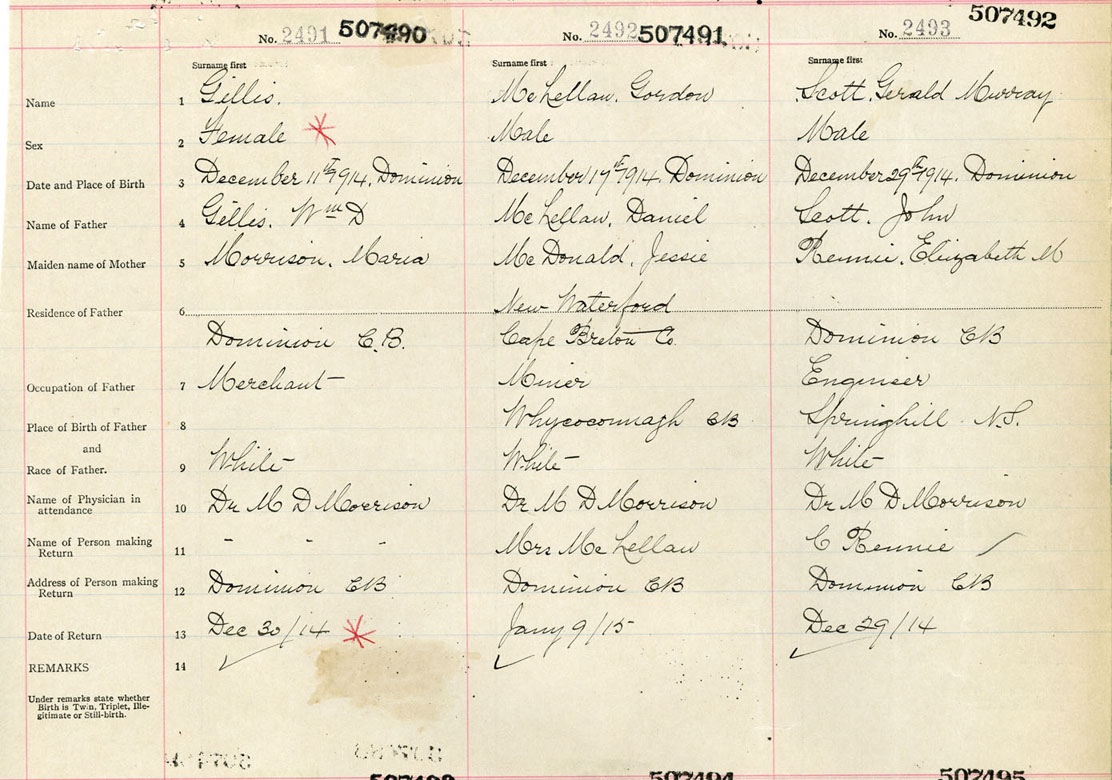 No. 2491 507490 No. 2492 507491 No. 2493 507492
Surname first Surname first Surname first
Name 1 Gillis. McLellan, Gordon Scott, Gerald Murray
Sex 2 Female * Male Male
Date and Place of Birth 3 December 11th 1914, Dominion December 17th 1914, Dominion December 29th 1914, Dominion
Name of Father 4 Gillis. Wm D McLellan, Daniel Scott. John
Maiden name of Mother 5 Morrison, Maria McDonald, Jessie Rennie, Elizabeth M
New Waterford
Residence of Father 6
Dominion C.B. Cape Breton Co. Dominion CB
Occupation of Father 7 Merchant Miner Engineer
Place of Birth of Father 8 Whycocomagh CB Springhill N.S.
and
Race of Father. 9 White White White
Name of Physician in
attendance 10 Dr M D Morrison Dr M D Morrison Dr M D Morrison
Name of Person making
Return 11 - - - Mrs McLellan C Rennie
Address of Person making
Return 12 Dominion CB Dominion CB Dominion CB
Date of Return 13 Dec 30/14 * Jany 9/15 Dec 29/14
REMARKS 14
Under remarks state whether
Birth is Twin, Triplet, Ille-
gitimate or Still-birth.
507494 507495